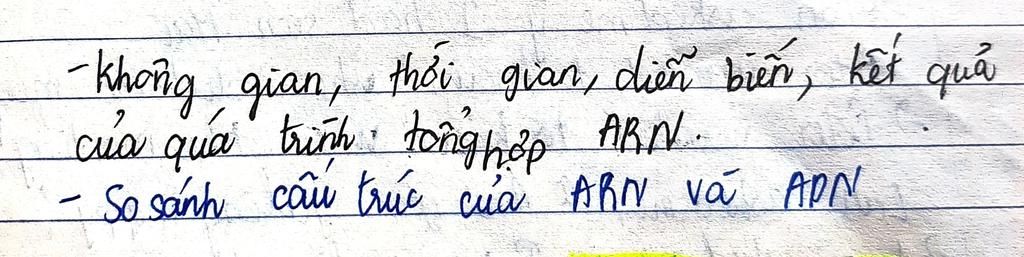 - Không gian, thời gian, diễn biến, kết quả
của quá trình tổng hợp ARN.
- So sánh cấu trúc của ARN và ADN